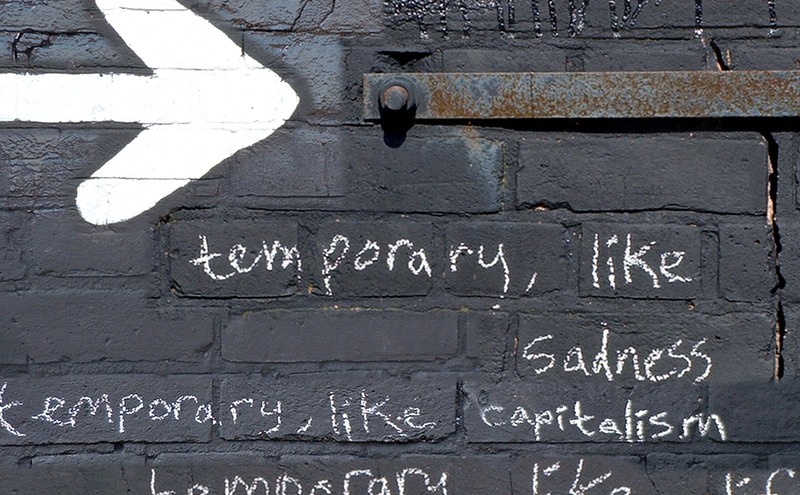 temporary, like
sadness
temporary, like capitalism
temporary like